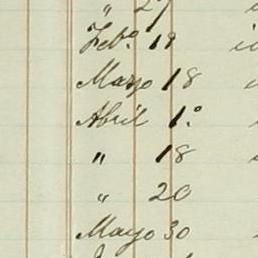 " 27
Feb.º 18
Marzo 18
Abril 1.º
" 18
" 20
Mayo 30